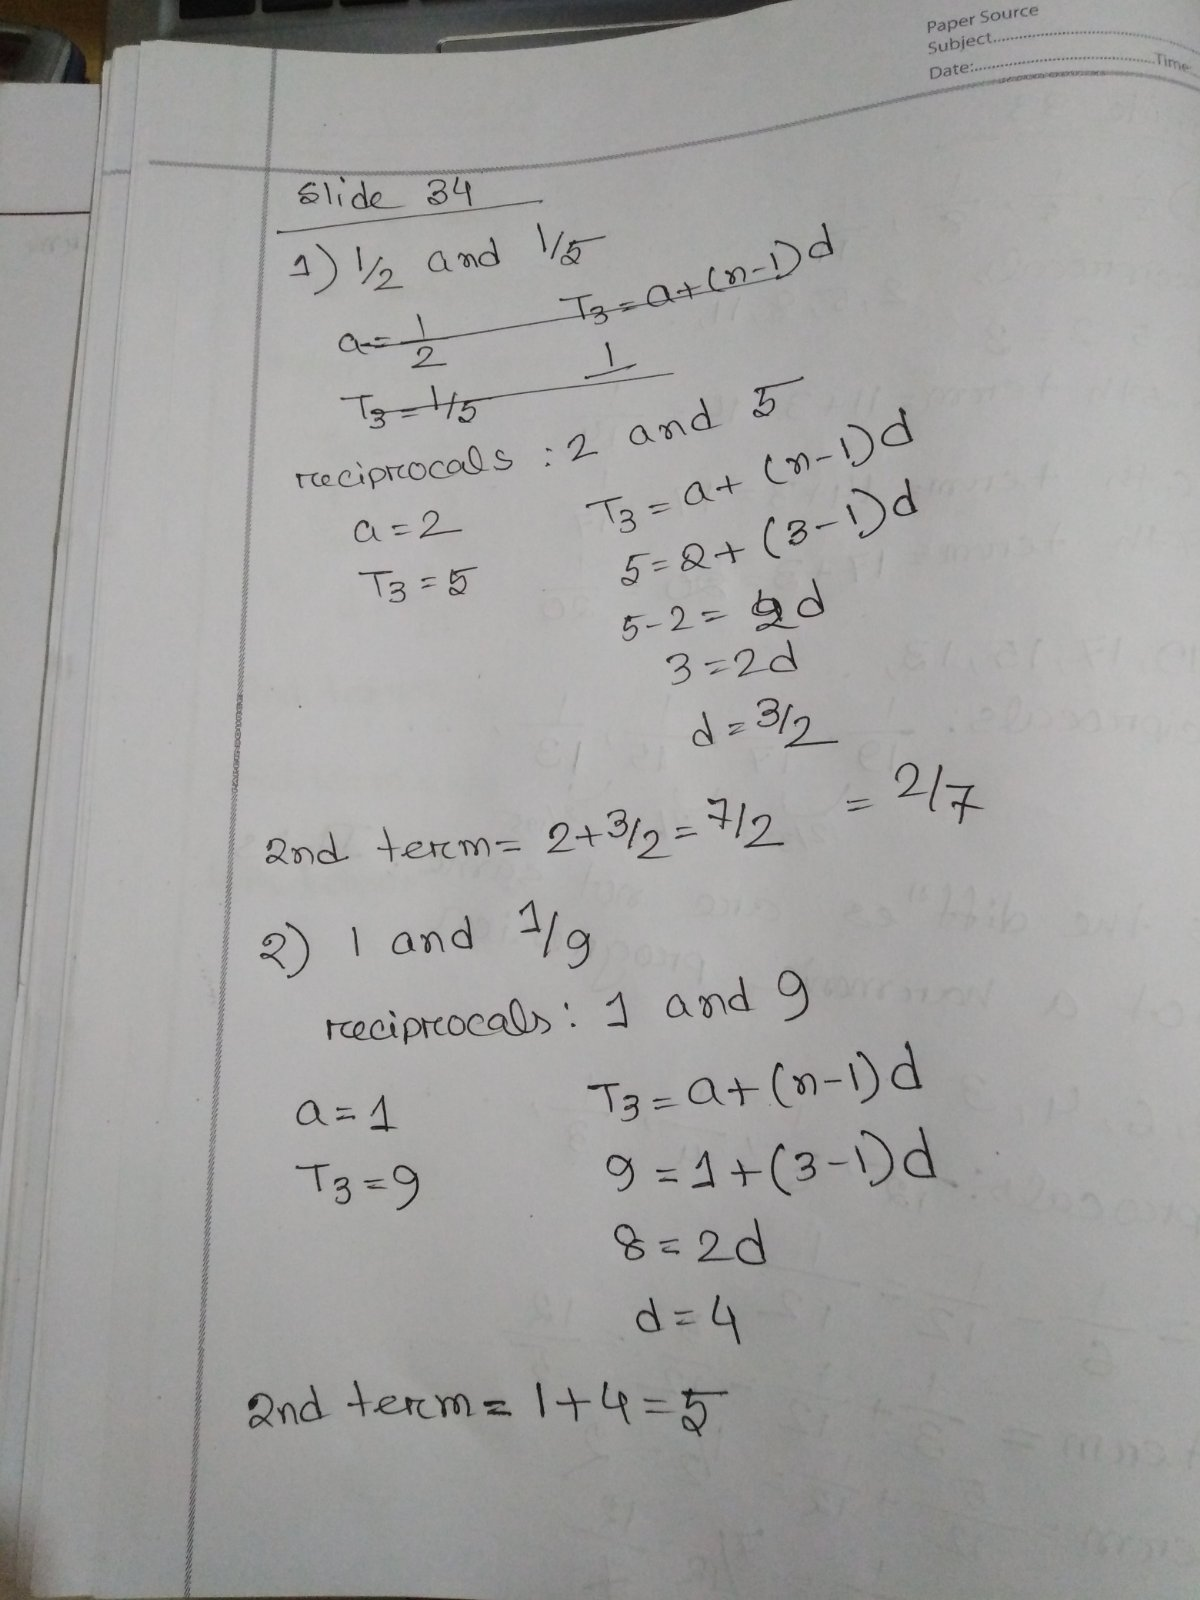 Paper Source
Subject
Date: Time
Slide 34
1) 1/2 and 1/5
a = 1/2 T3 = a + (n-1)d
T3 = 1/5 1
reciprocals : 2 and 5
a = 2 T3 = a + (n-1)d
T3 = 5 5 = 2 + (3-1)d
5-2 = 2d
3 = 2d
d = 3/2
2nd term = 2+3/2 = 7/2 = 2/7
2) 1 and 1/9
reciprocals : 1 and 9
a = 1 T3 = a + (n-1)d
T3 = 9 9 = 1 + (3-1)d
8 = 2d
d = 4
2nd term = 1+4 = 5